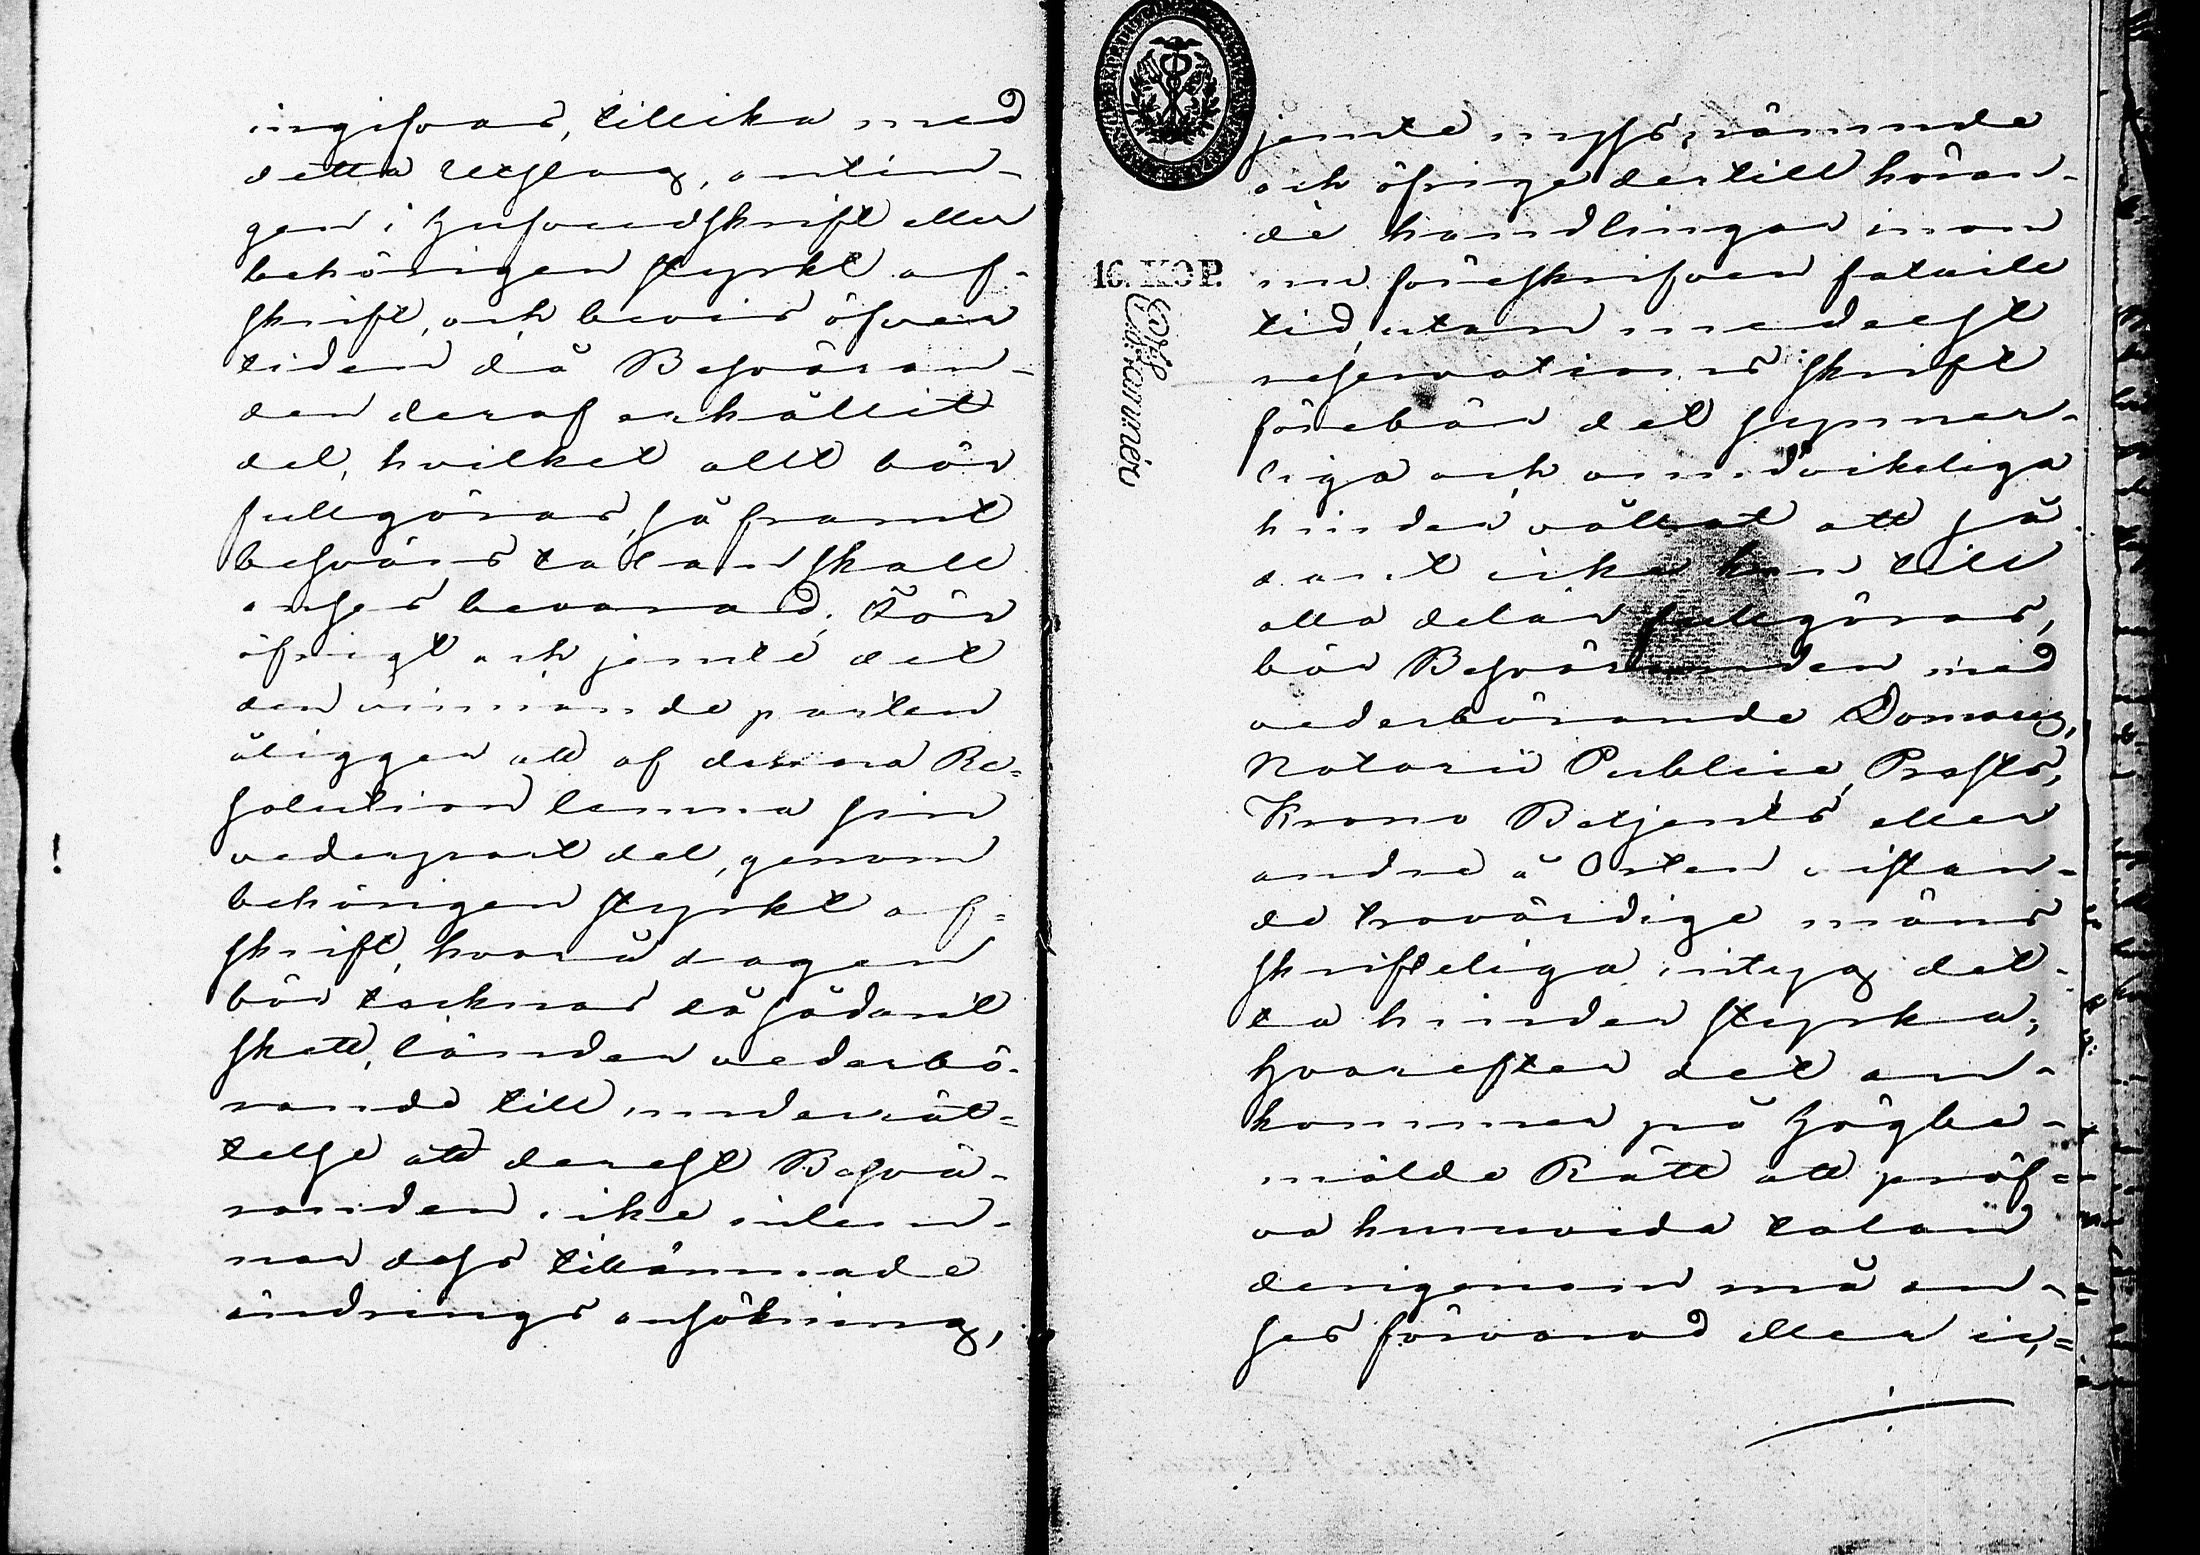 ingifvas, tillika med
detta Utslag, antin-
gen i hufvudskrift eller
behörigen styrkt af-
skrift, och bevis öfver
tiden då Besväran-
den deraf erhållit
del, hvilket allt bör
fullgöras, så framt
besvärstalan skall
anses bevarad; För
öfrigt och jemte det
den vinnande parten
åligger att af denna Re-
solution lemna sin
vederpart del, genom
behörigen styrkt af-
skrift, hvarå dagen
bör tecknas då sådant
skett, länder vederbö-
rande till underrät-
telse att derest Besvä-
randen icke inlem-
nar dess tillämnade
ändrings ansökning,
jemte nyssnämnde
och öfrige dertill höran-
de handlingar inom
nu föreskrifven fatalie
tid, utan medelst
reservations skrift
förebär det synner-
liga och oundvikeliga
hinder vållat att så-
dant icke kan till
alla delar fullgöras,
bör Besväranden med
vederbörande Domares,
Notarii Publici, Prests,
Krono Betjents eller
andre å Orten vistan-
de trovärdige mäns
skrifteliga intyg det-
ta hinder styrka;
hvarefter det an-
kommer på Högbe-
mälde Rätt att pröf-
va huruvida talan
derigenom må an-
ses förvarad eller ic-
16. KOP.